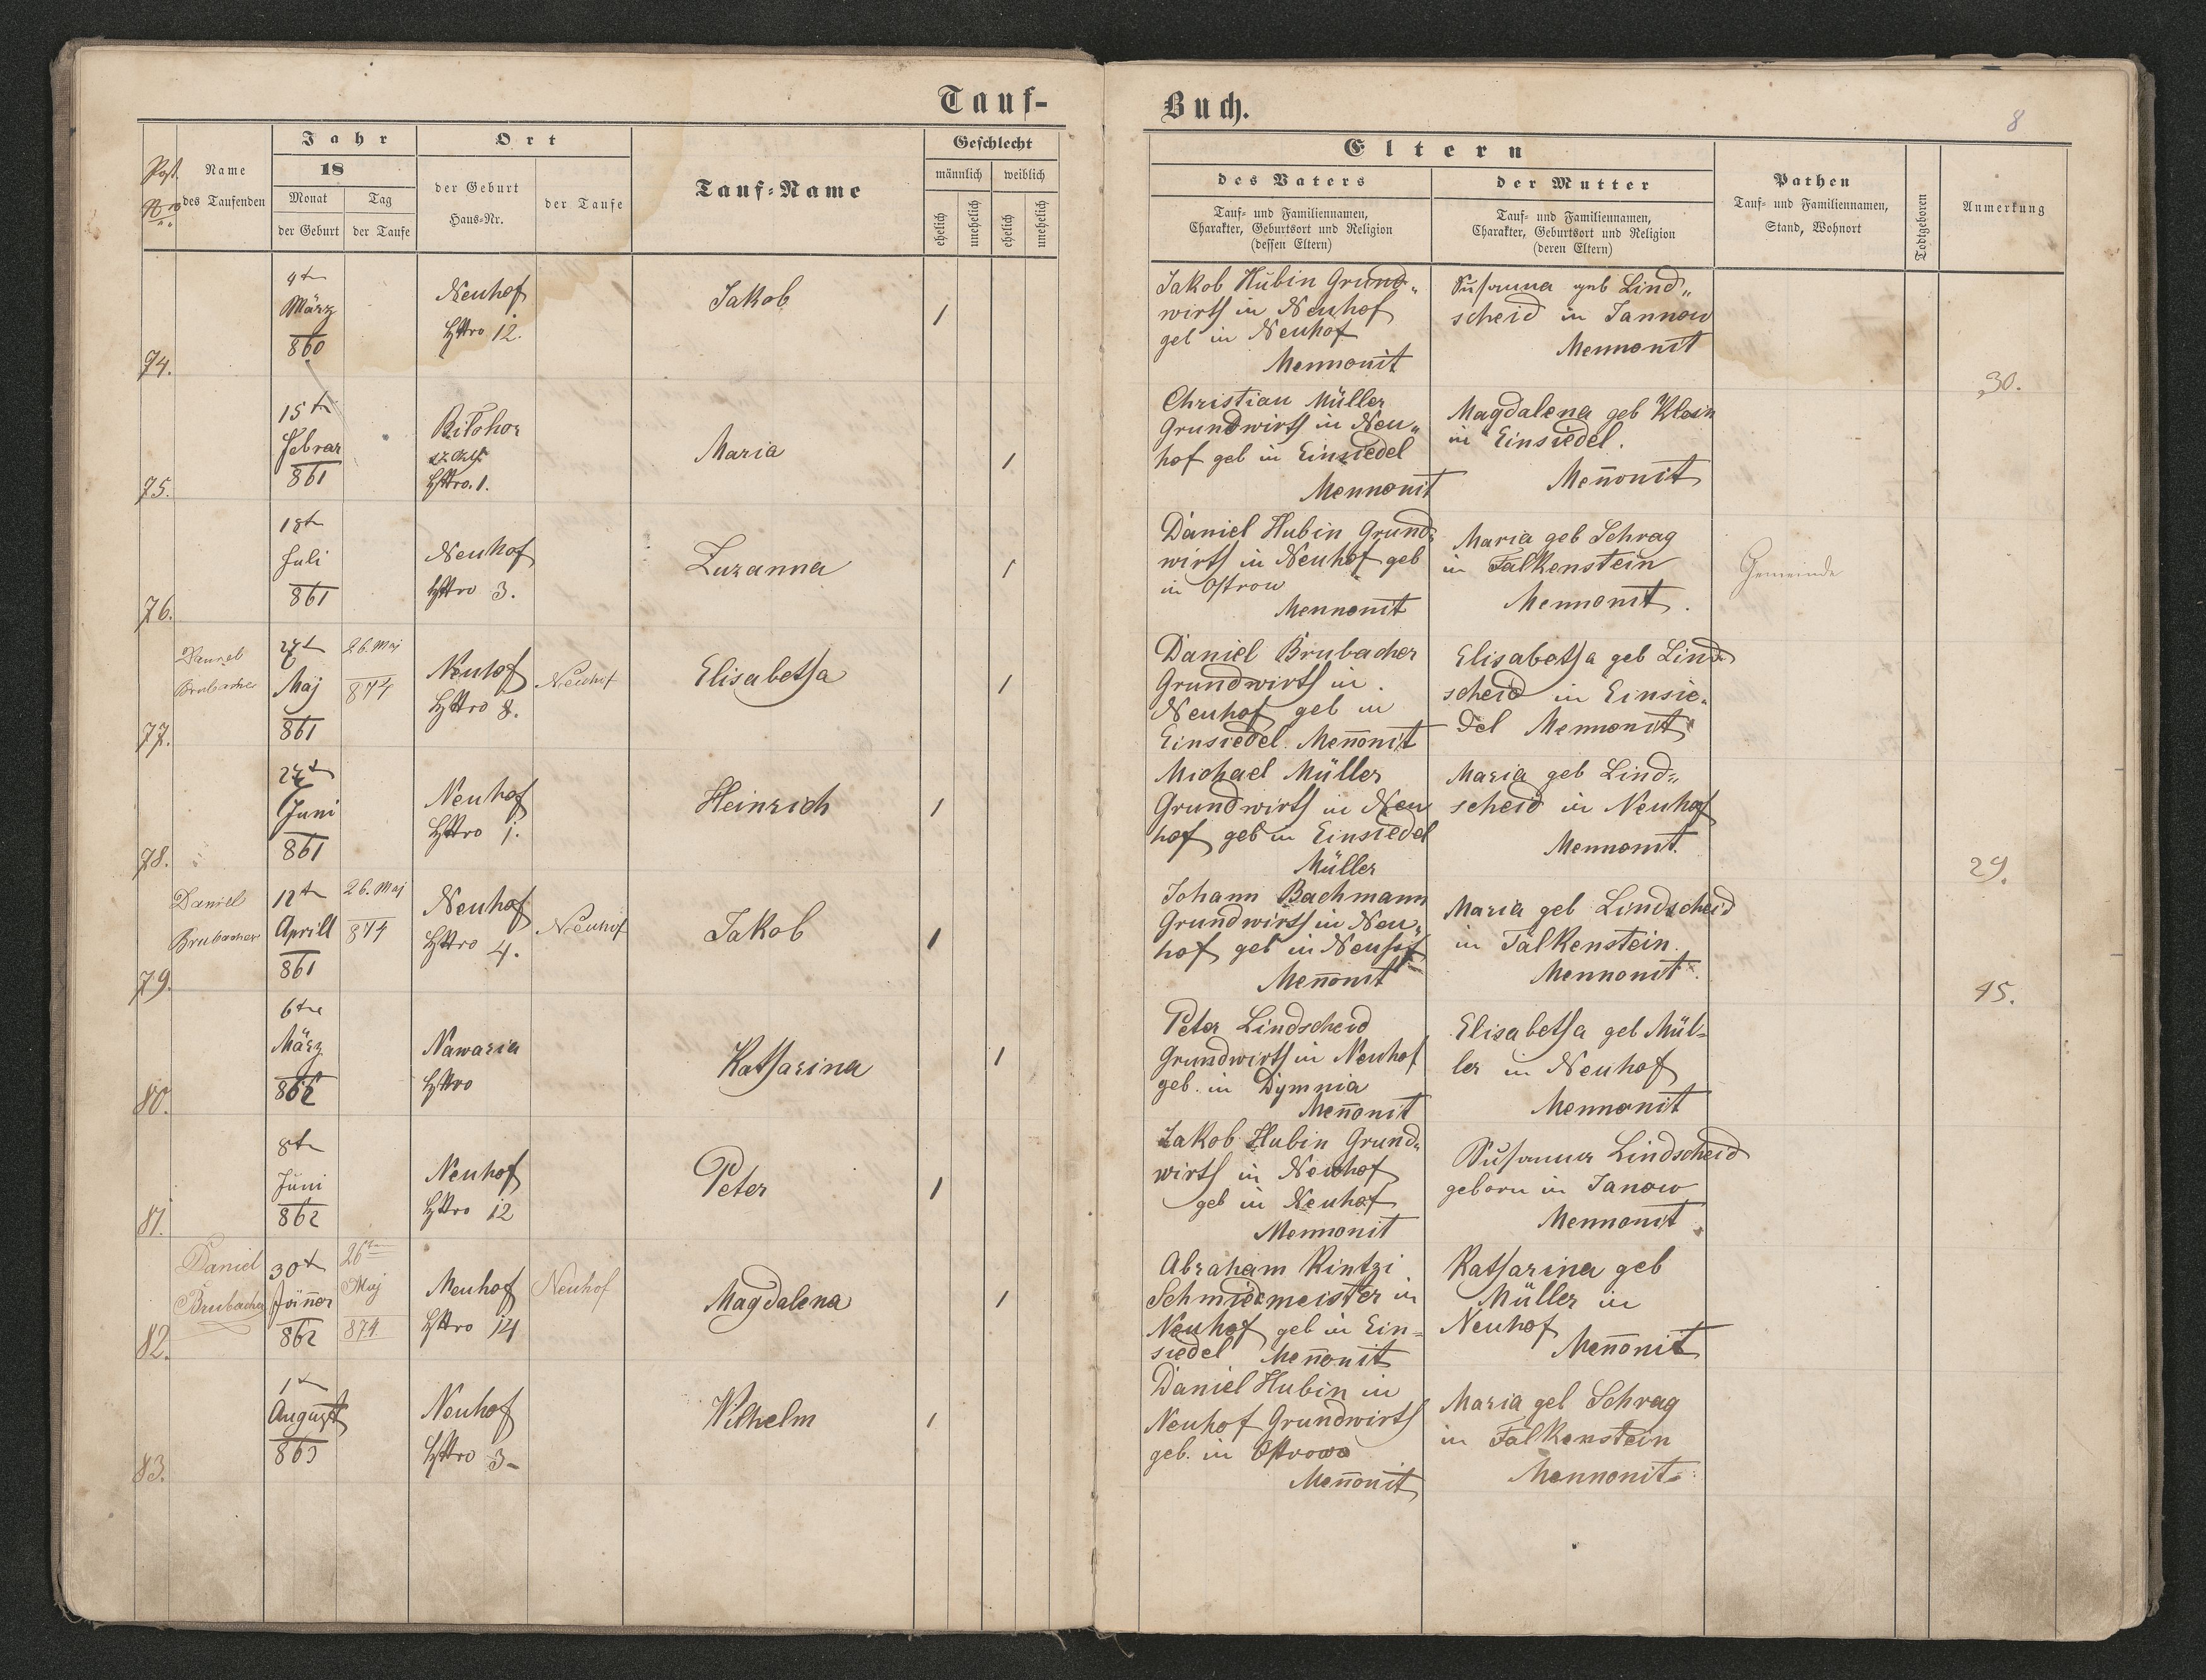 Tauf-
Buch.
8
Post. Nro
Name
des Taufenden
Jahr
18
Monat
der Geburt
Tag
der Taufe
Ort
der Geburt
Haus-Nr.
der Taufe
Tauf-Name
Geschlecht
männlich
weiblich
ehelich
unehelich
ehelich
unehelich
Eltern
des Vaters
Tauf- und Familiennamen,
Charakter, Geburtsort und Religion
(dessen Eltern)
der Mutter
Tauf- und Familiennamen,
Charakter, Geburtsort und Religion
(deren Eltern)
Pathen
Tauf- und Familiennamen,
Stand, Wohnort
Todtgeboren
Anmerkung
74.
März
860
Neuhof
HNro 12.
Jakob
1
Jakob Hubin Grund„
wirth in Neuhof
geb in Neuhof
Mennonit
Susanna geb Lind„
scheid in Jannow
Mennonit
30.
75.
15t
Febrar
861
HNro. 1.
Maria
1
Christian Müller
Grundwirth in Neu„
hof geb in Einsiedel
Mennonit
Magdalena geb Klein
in Einsiedel.
Menonit
76.
18t
Juli
861
Neuhof
HNro 3.
Zuzanna
1
Daniel Hubin Grund„
wirth in Neuhof geb
in Ostrow
Mennonit
Maria geb Schrag
in Falkenstein
Mennonit.
Gemeinde
77.
Daniel
Brubacher
27t
Maj
861
26. Maj
874
Neuhof
HNro 8.
Neuhof
Elisabetha
1
Daniel Brubacher
Grundwirth in
Neuhof geb in
Einsiedel. Menonit
Elisabetha geb Lind
scheid in Einsie„
del Mennonit
78.
27t
Juni
861
Neuhof
HNro 1.
Heinrich
1
Michael Müller
Grundwirth in Neu
hof geb in Einsiedel
Müller
Maria geb Lind„
scheid in Neuhof
Mennonit.
29.
79.
Daniel
Brubacher
12t
Aprill
861
26. Maj
874
Neuhof
HNro 4.
Neuhof
Jakob
1
Johann Bachmann
Grundwirth in Neu„
hof geb in Neuhof
Menonit
Maria geb Lindscheid
in Falkenstein.
Mennonit.
45.
80.
6te
März
862
Nawaria
HNro
Katharina
1
Peter Lindscheid
Grundwirth in Neuhof
geb. in Dymnia
Menonit
Elisabetha geb Mül-
ler in Neuhof
Mennonit
81.
8t
Juni
862
Neuhof
HNro 12
Peter
1
Jakob Hubin Grund„
wirth in Neuhof
geb in Neuhof
Mennonit
Susanna Lindscheid
geborn in Janow
Mennonit
82.
Daniel
Brubacher
30t
Jänner
862
26t
Maj
874
Neuhof
HNro 14
Neuhof
Magdalena
1
Abraham Rintzi
Schmidmeister in
Neuhof geb in Ein-
siedel Menonit
Katharina geb
Müller in
Neuhof
Menonit
83.
1t
August
863
Neuhof
HNro 3-
Wilhelm
1
Daniel Hubin in
Neuhof Grundwirth
geb. in Ostrowo
Menonit
Maria geb Schrag
in Falkenstein
Mennonit